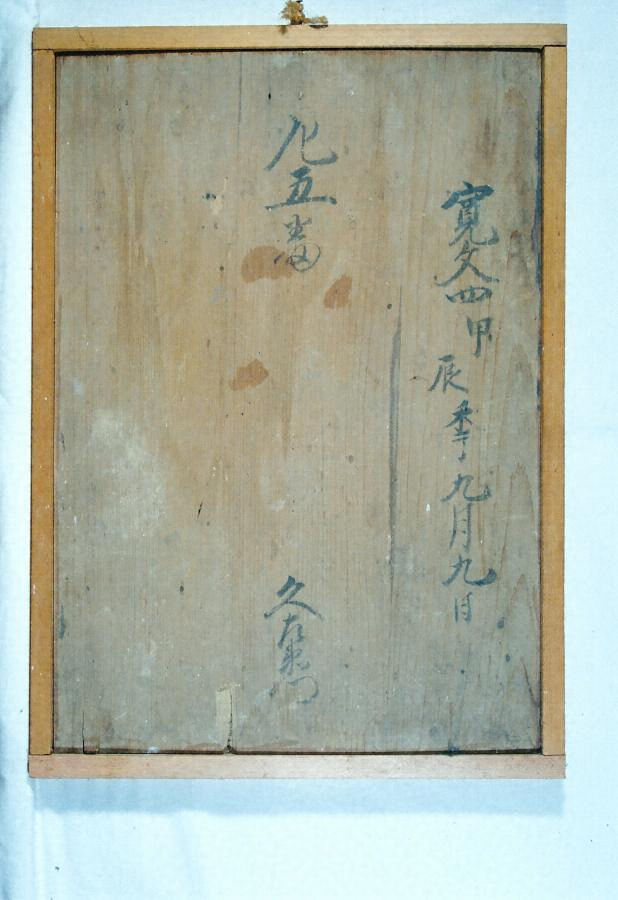 寛文四甲辰季九月九日
九五番
久右衛門